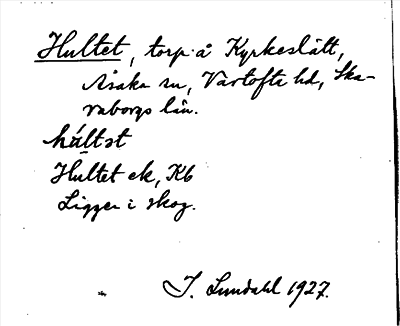 Hultet, torp å Kyrkeslätt,
Åsaka sn, Vartofta hd, Ska-
raborgs län.
húltət
Hultet ek, Kb
Ligger i skog.
I. Lundahl 1927.